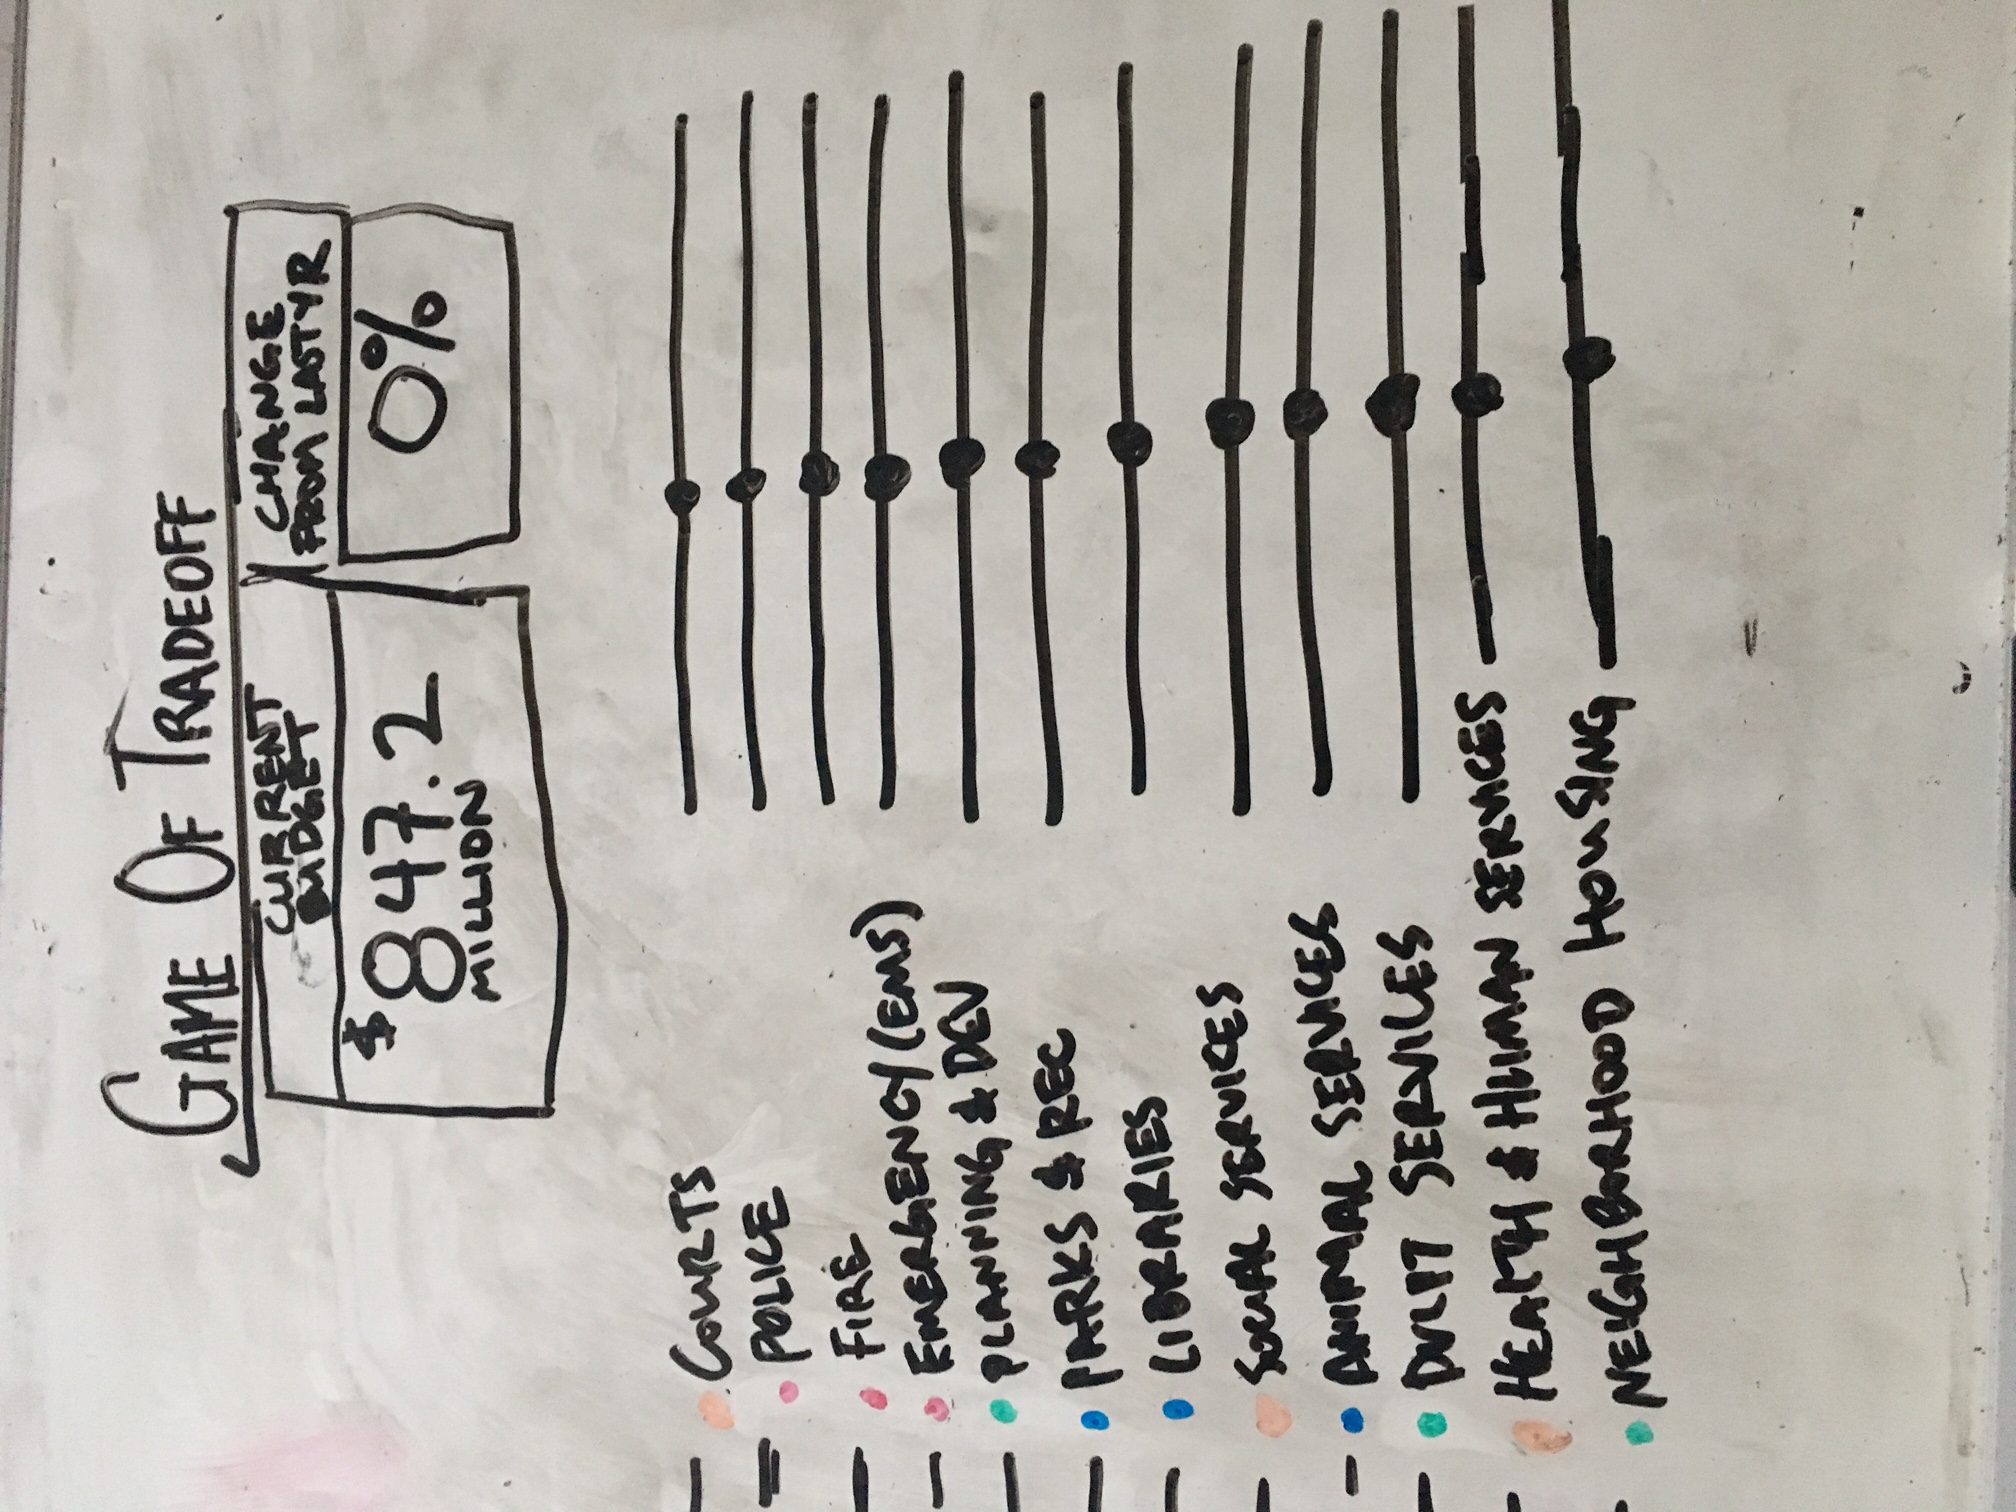 GAME OF TRADEOFF
CURRENT
BUDGET
$847.2
MILLION
CHANGE
FROM LAST YR
0%
COURTS
POLICE
FIRE
EMERGENCY (EMS)
PLANNING & DEV
PARKS & REC
LIBRARIES
SOCIAL SERVICES
ANIMAL SERVICES
DVLPT SERVICES
HEALTH & HUMAN SERVICES
NEIGHBORHOOD HOUSING